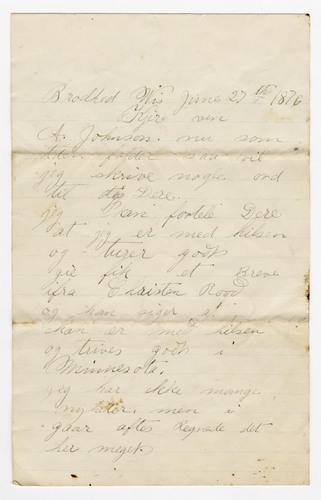 Brodhed Wis June 27th 1876
Kjære ven
A. Johnson. nu som
fader saa vil
jeg skrive nogle ord
til Dere.
jeg kan fortele Dere
at jeg er med helsen
og turer godt
fik et Breve
ifra Christen Rood
og han siger at
han er med helsen
og trives godt i
Minnesota.
jeg har ikke mange
nyheter. men i
gaar aftes Regnede det
her meget